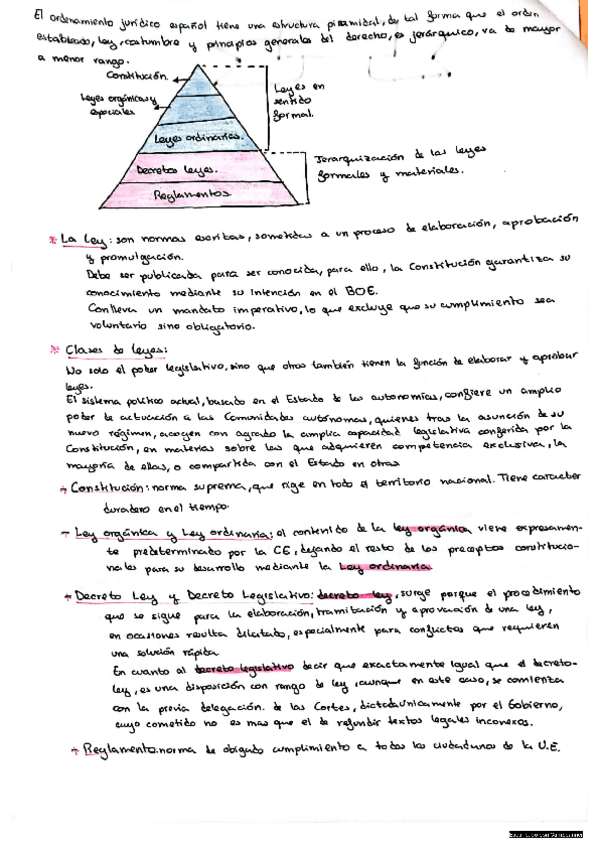 El ordenamiento jurídico español tiene una estructura piramidal, de tal forma que el orden
establecido, ley, costumbre y principios generales del derecho, es jerárquico, va de mayor
a menor rango.
Constitución.
Leyes en
sentido
formal.
Leyes orgánicas y
especiales
Leyes ordinarias.
Decretos leyes.
Jerarquización de las leyes
formales y materiales.
Reglamentos
* La Ley: son normas escritas, sometidas a un proceso de elaboración, aprobación
y promulgación.
Debe ser publicada para ser conocida, para ello, la Constitución garantiza su
conocimiento mediante su intención en el BOE.
Conlleva un mandato imperativo, lo que excluye que su cumplimiento sea
voluntario sino obligatorio.
* Clases de leyes:
No solo el poder legislativo, sino que otros también tienen la función de elaborar y aprobar
leyes.
El sistema político actual, basado en el Estado de las autonomías, confiere un amplio
poder de actuación a las Comunidades autónomas, quienes tras la asunción de su
nuevo régimen, acogen con agrado la amplia capacidad legislativa conferida por la
Constitución, en materias sobre las que adquieren competencia exclusiva, la
mayoría de ellas, o compartida con el Estado en otras
→ Constitución: norma suprema, que rige en todo el territorio nacional. Tiene caracter
duradero en el tiempo.
→ Ley orgánica y Ley ordinaria: el contenido de la ley orgánica viene expresamen-
te predeterminado por la CE, dejando el resto de los preceptos constitucio-
nales para su desarrollo mediante la Ley ordinaria
→ Decreto Ley y Decreto Legislativo: decreto ley, surge porque el procedimiento
que se sigue para la elaboración, tramitación y aprovación de una ley,
en ocasiones resulta dilatado, especialmente para conflictos que requieren
una solución rápida.
En cuanto al decreto legislativo decir que exactamente igual que el decreto-
ley, es una disposición con rango de ley, aunque en este caso, se comienza
con la previa delegación de las Cortes, dictada únicamente por el Gobierno,
cuyo cometido no es mas que el de refundir textos legales inconexos.
→ Reglamento: norma de obligado cumplimiento a todos los ciudadanos de la U.E.